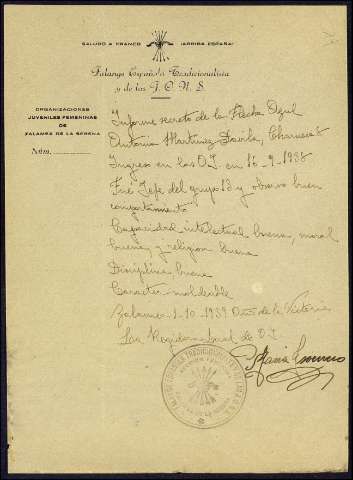 SALUDO A FRANCO ¡ARRIBA ESPAÑA!
Falange Española Tradicionalista
y de las J.O.N.S.
ORGANIZACIONES
JUVENILES FEMENINAS
DE
ZALAMEA DE LA SERENA
Núm.
Informe secreto de la Flecha Azul
Antonia Martinez Davila,
Ingreso en las O.J. en 16-9-1938
Fue Jefe del grupo 13 y observo buen
comportamiento
Capacidad intelectual buena, moral
buena, y religion buena
Disciplina buena
Caracter moldeable
Zalamea 1-10-1939 Año de la Victoria
La Regidora local de O.J.
Maria
FALANGE ESPAÑOLA TRADICIONALISTA Y DE LAS J.O.N.S.